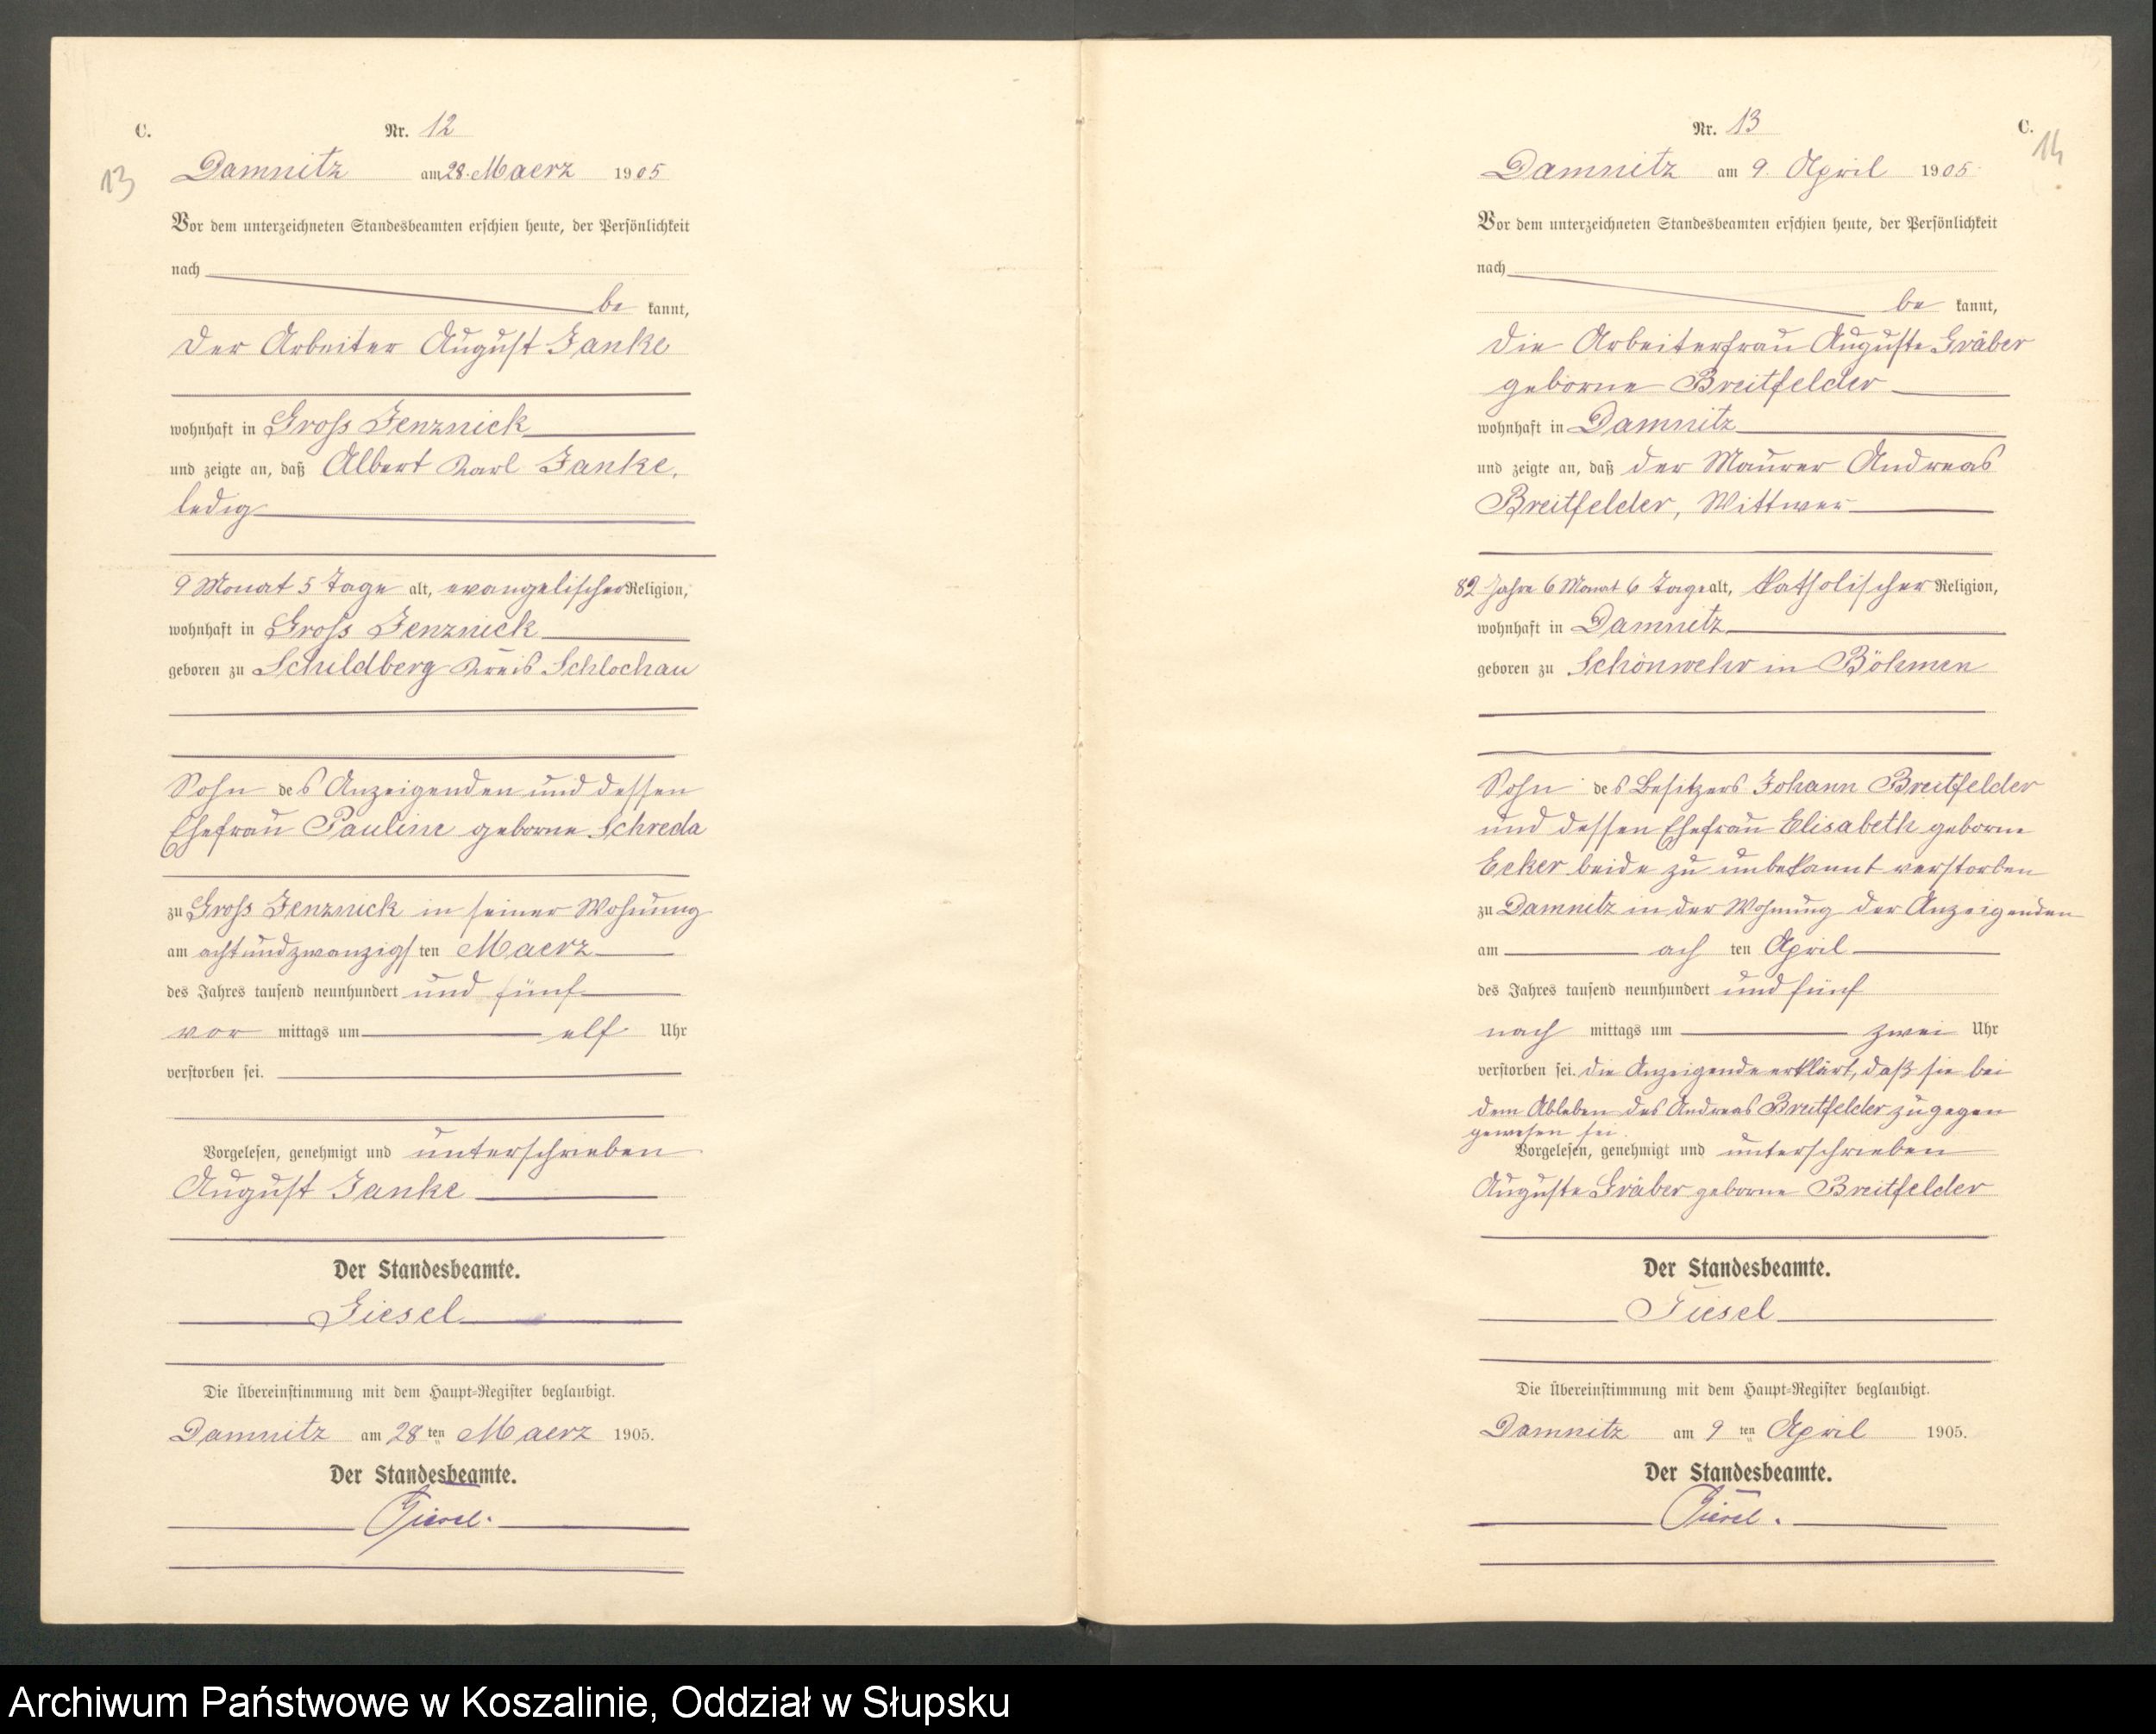 C.
Nr. 12
13
Damnitz am 28. Maerz 1905
Vor dem unterzeichneten Standesbeamten erschien heute, der Persönlichkeit
nach
be kannt,
der Arbeiter August Janke
wohnhaft in Gross Jenznick
und zeigte an, daß Albert Karl Janke,
ledig
9 Monat 5 Tage alt, evangelischer Religion,
wohnhaft in Gross Jenznick
geboren zu Schildberg Kreis Schlochau
Sohn des Anzeigenden und dessen
Ehefrau Pauline geborne Schreda
zu Gross Jenznick in seiner Wohnung
am achtundzwanzigs ten Maerz
des Jahres tausend neunhundert und fünf
vor mittags um elf Uhr
verstorben sei.
Vorgelesen, genehmigt und unterschrieben
August Janke
Der Standesbeamte.
Giesel
Die Übereinstimmung mit dem Haupt-Register beglaubigt.
Damnitz am 28 ten Maerz 1905.
Der Standesbeamte.
Giesel.
Nr. 13
C.
14
Damnitz am 9. April 1905
Vor dem unterzeichneten Standesbeamten erschien heute, der Persönlichkeit
nach
be kannt,
die Arbeiterfrau Auguste Gräber
geborne Breitfelder
wohnhaft in Damnitz
und zeigte an, daß der Maurer Andreas
Breitfelder, Wittwer
82 Jahre 6 Monat 6 Tage alt, katholischer Religion,
wohnhaft in Damnitz
geboren zu Schönwehr in Böhmen
Sohn des Besitzers Johann Breitfelder
und dessen Ehefrau Elisabeth geborne
Ecker beide zu unbekannt verstorben
zu Damnitz in der Wohnung der Anzeigenden
am ach ten April
des Jahres tausend neunhundert und fünf
nach mittags um zwei Uhr
verstorben sei. die Anzeigende erklärt, daß sie bei
dem Ableben des Andreas Breitfelder zugegen
gewesen sei.
Vorgelesen, genehmigt und unterschrieben
Auguste Gräber geborne Breitfelder
Der Standesbeamte.
Giesel
Die Übereinstimmung mit dem Haupt-Register beglaubigt.
Damnitz am 9 ten April 1905.
Der Standesbeamte.
Giesel.
Archiwum Państwowe w Koszalinie, Oddział w Słupsku